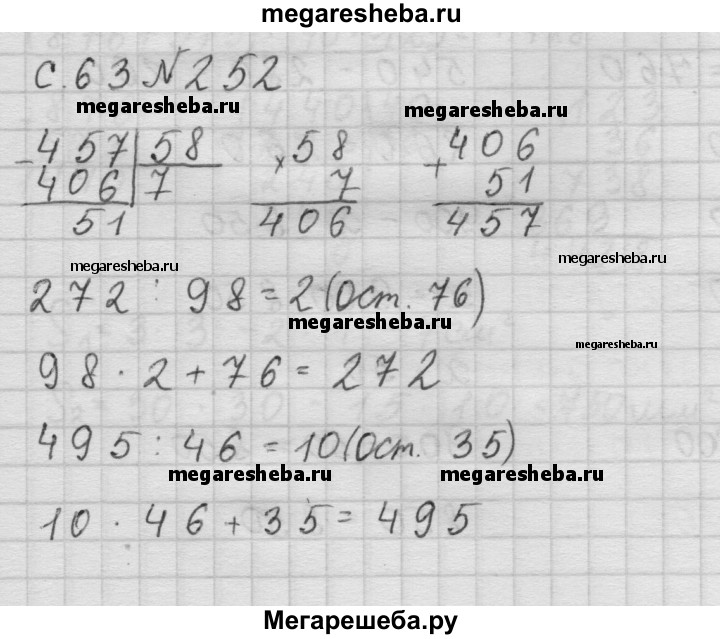 megaresheba.ru
с. 63 № 252
megaresheba.ru megaresheba.ru
- 457 | 58 × 58 + 406
406 | 7 7 51
51 406 457
megaresheba.ru megaresheba.ru
272 : 98 = 2 (Ост. 76)
megaresheba.ru megaresheba.ru
98 · 2 + 76 = 272
495 : 46 = 10 (Ост. 35)
megaresheba.ru megaresheba.ru
10 · 46 + 35 = 495
Мегарешеба.ру